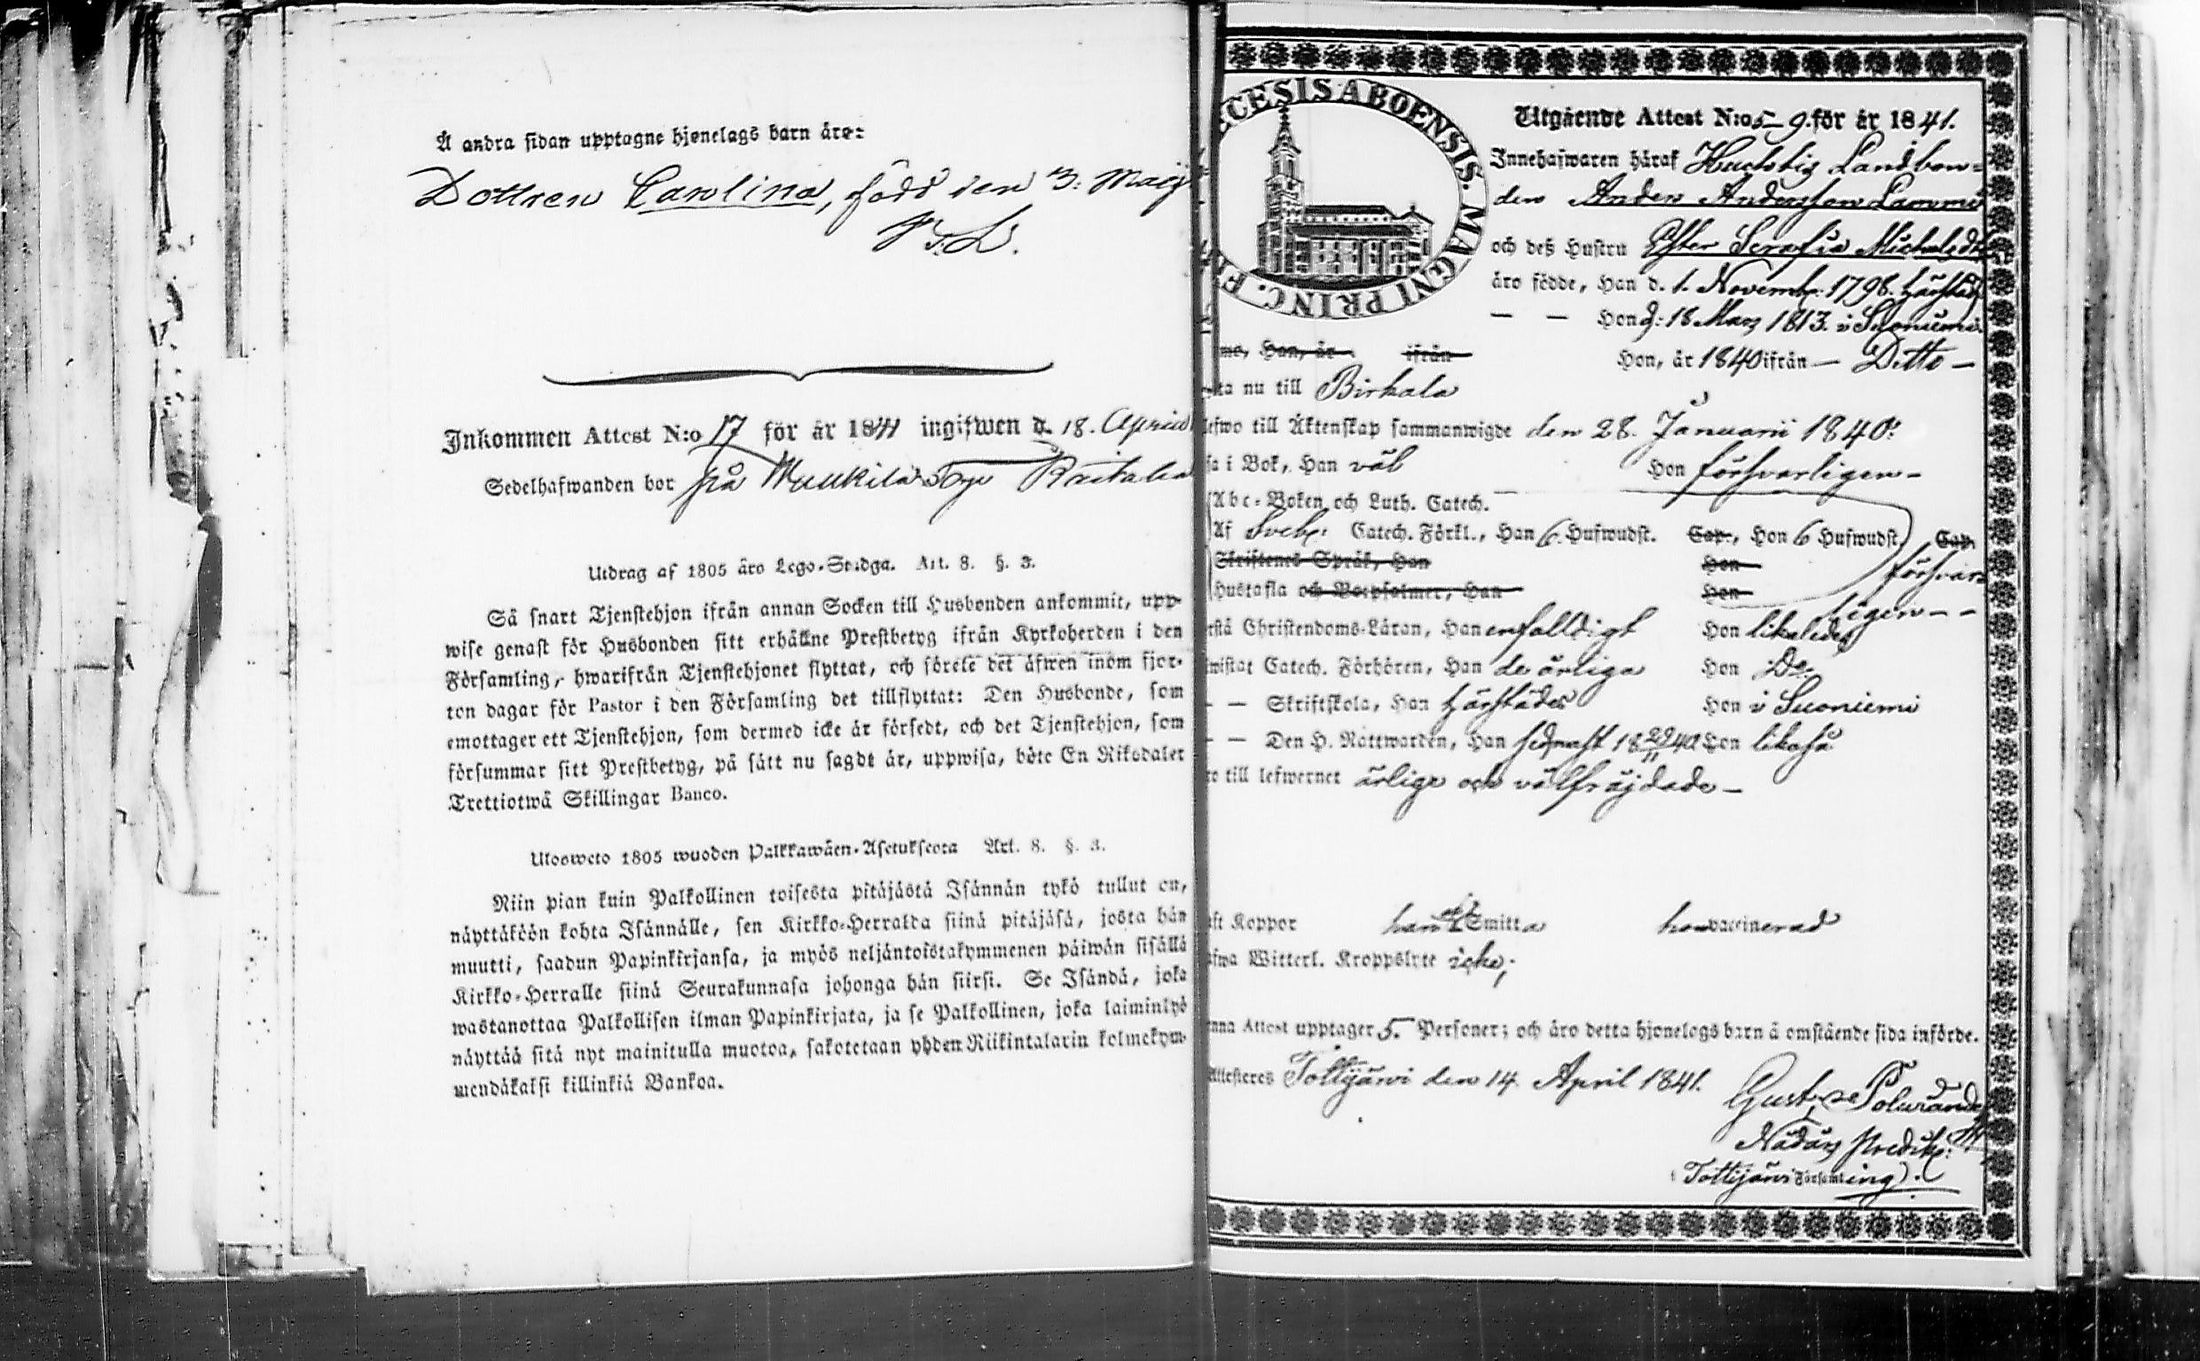 Å andra sidan upptagne hjonelags barn äro:
Dottren Carolina, född den 3: Maij
Inkommen Attest N:o 17 för år 1841 ingifwen d. 18. April
Sedelhafwanden bor på
Utdrag af 1805 års Lego-Stadga. Art. 8. §. 3.
Så snart Tjenstehjon ifrån annan Socken till Husbonden ankommit, upp-
wise genast för Husbonden sitt erhållne Prestbetyg ifrån Kyrkoherden i den
Församling, hwarifrån Tjenstehjonet flyttat, och förete det äfwen inom fjor-
ton dagar för Pastor i den Församling det tillflyttat: Den Husbonde, som
emottager ett Tjenstehjon, som dermed icke är försedt, och det Tjenstehjon, som
försummar sitt Prestbetyg, på sätt nu sagdt är, uppwisa, böte En Riksdaler
Trettiotwå Skillingar Banco.
Ulosweto 1805 wuoden Palkkawäen-Asetuksesta Art. 8. §. 3.
Niin pian kuin Palkollinen toisesta pitäjästä Isännän tykö tullut on,
näyttäköön kohta Isännälle, sen Kirkko-Herralda siinä pitäjäsä, josta hän
muutti, saadun Papinkirjansa, ja myös neljäntoistakymmenen päiwän sisällä
Kirkko-Herralle siinä Seurakunnasa johonga hän siirsi. Se Isändä, joka
wastanottaa Palkollisen ilman Papinkirjata, ja se Palkollinen, joka laiminlyö
näyttää sitä nyt mainitulla muotoa, sakotetaan yhden Riikintalarin kolmekym-
mendäkaksi killinkiä Bankoa.
CESIS ABOENSIS. MAGNI PRINC. F
Utgående Attest N:o 5-9. för år 1841.
Innehafwaren häraf Landbon-
den Anders Andersson Lammi
och deß Hustru Ester Serafia Michelsdr
äro födde, Han d. 1. Novembr. 1798. härstädes
— — Hon d: 18 Mars 1813. i Suoniemi.
me, Han, år ifrån Hon, år 1840 ifrån — Ditto —
ta nu till Birkala
lefwo till Äktenskap sammanwigde den 28. Januarii 1840:
sa i Bok, Han väl Hon försvarligen —
Abc-Boken och Luth. Catech.
Af Sveb: Catech. Förkl., Han 6. Hufwudst. Cap., Hon 6 Hufwudst. Cap.
Skriftenes Språk, Han Hon försvar-
Hustafla och Botpsalmer, Han Hon ligen - -
rstå Christendoms-Läran, Han enfalldigt Hon likaledes
wistat Catech. Förhören, Han de årliga Hon De
— — Skriftskola, Han härstädes Hon i Suoniemi
— — Den H. Nattwarden, Han sednast 18 29/11 40 Hon likaså
ro till lefwernet ärlige och välfräjdade —
ft Koppor han ej Smitta hon vaccinerad
afwa Witterl. Kroppslyte icke;
nna Attest upptager 5. Personer; och äro detta hjonelags barn å omstående sida införde.
Attesteres Tottijärvi den 14. April 1841.
Gust.
Nådårs Predik:
Tottijärvi Församling).